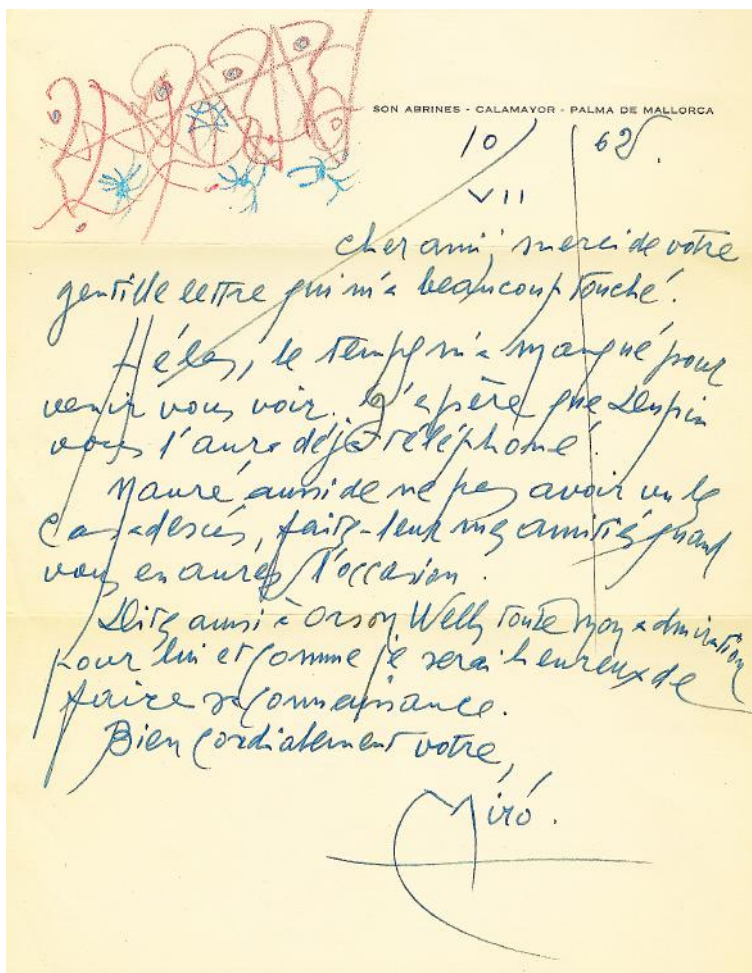 SON ABRINES - CALAMAYOR - PALMA DE MALLORCA
10 / 62.
VII
cher ami, merci de votre
gentille lettre qui m'a beaucoup touché.
Hélas, le temps m'a manqué pour
venir vous voir. J'espère que Dupin
vous l'aura déjà téléphoné.
Navré aussi de ne pas avoir vu les
Casadesús, faites-leur mes amitiés quand
vous en aurez l'occasion.
Dites aussi à Orson Welles toute mon admiration
pour lui et comme je serai heureux de
faire sa connaissance.
Bien cordialement votre,
Miró.